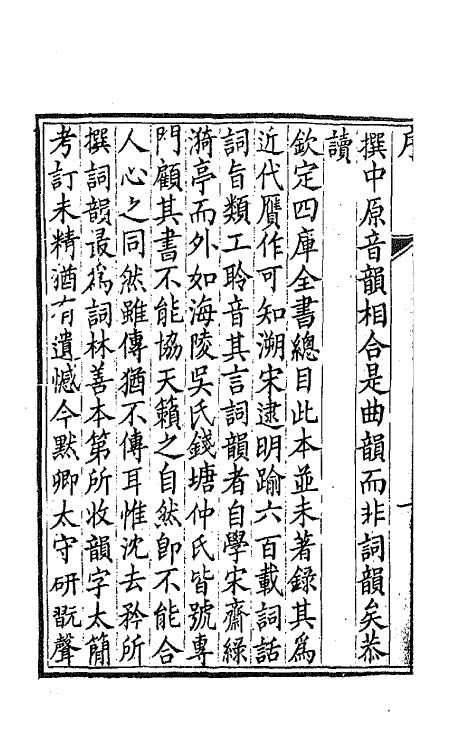 序
一
撰中原音韻相合是曲韻而非詞韻矣恭
讀
欽定四庫全書總目此本並未著錄其爲
近代贋作可知溯宋逮明踰六百載詞話
詞旨類工聆音其言詞韻者自學宋齋綠
漪亭而外如海陵吳氏錢塘仲氏皆號專
門顧其書不能協天籟之自然卽不能合
人心之同然雖傳猶不傳耳惟沈去矜所
撰詞韻最爲詞林善本第所收韻字太簡
考訂未精猶有遺憾今默卿太守研翫聲